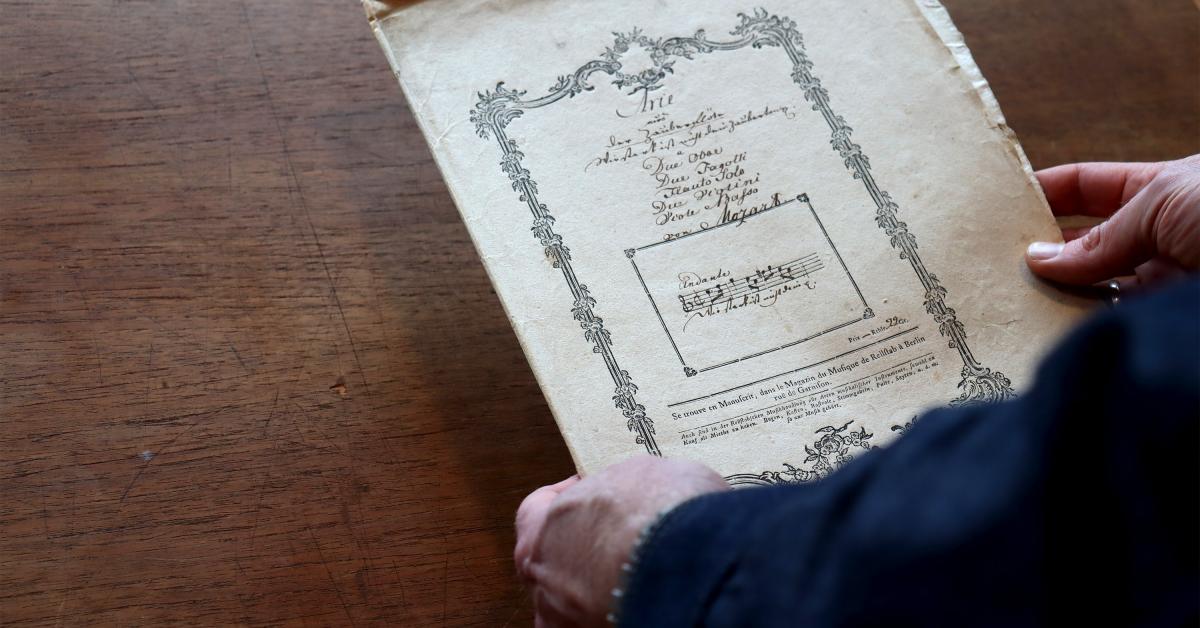 Arie
aus
der Zauberflöte
Wie stark ist nicht dein Zauberton
a
Due Oboe
Due Fagotti
Flauto Solo
Due Violini
Viole Basso
von Mozart
Andante
Wie stark ist nicht dein
Prix — Rthlr. 22 Gr.
Se trouve en Manuscrit, dans le Magazin du Musique de Rellstab à Berlin
rue de Garnison.
Auch sind in der Rellstabschen Musikhandlung für deren musikalischer Instrumente, sowohl zu
Kauf, als Miethe zu haben. Bogen, Kasten, Rastrale, Stimmgabeln, Pulte, Sayten, u. d. m.
so zur Musik gehört.